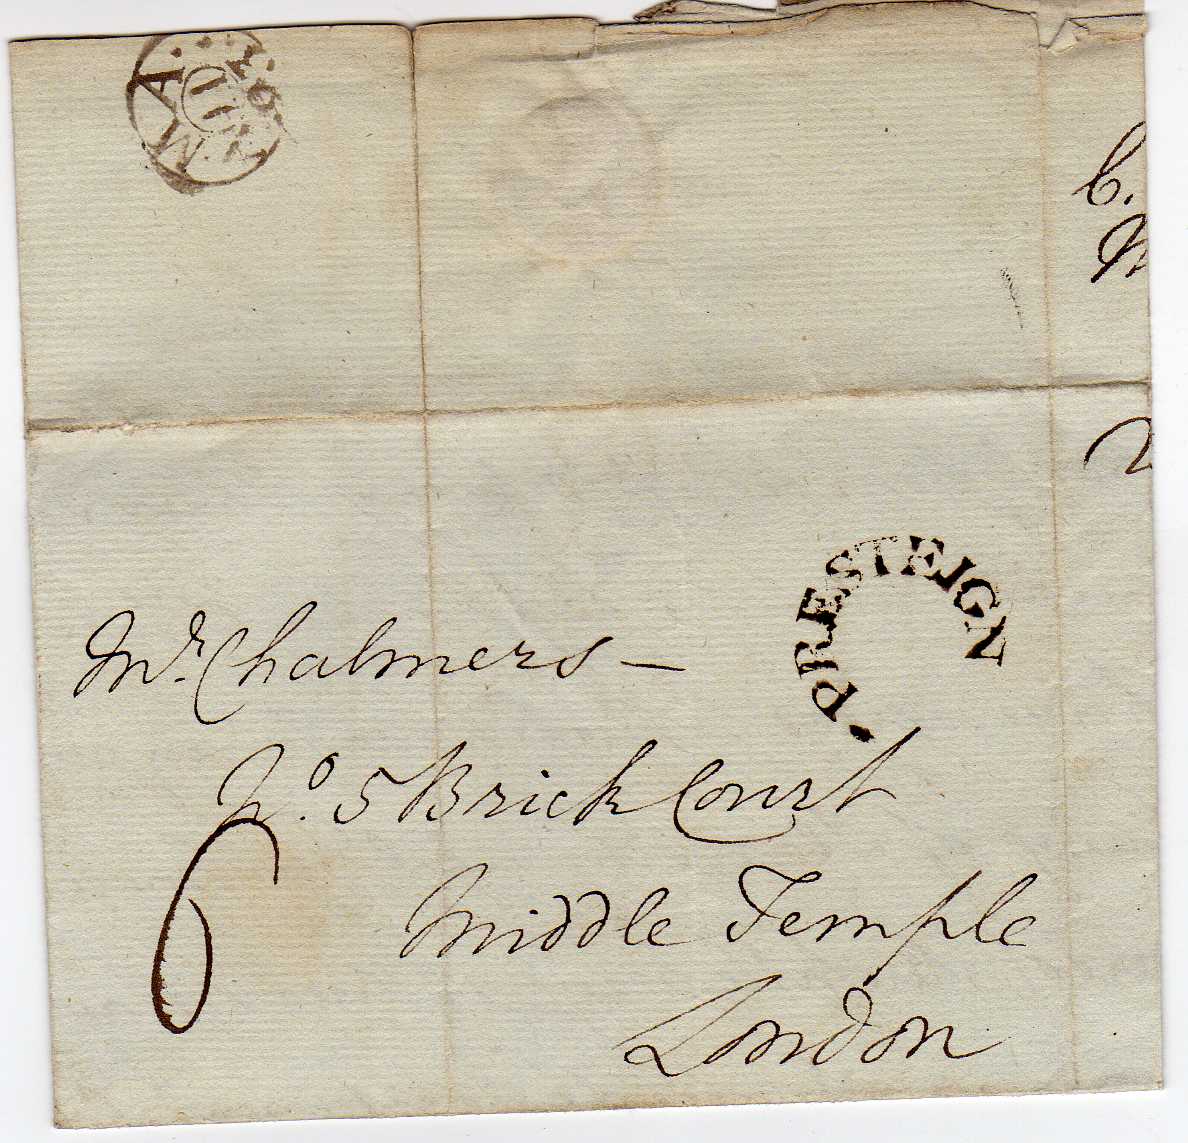 C.
PRESTEIGN
Mr. Chalmers —
No. 5 Brick Court
6
Middle Temple
London